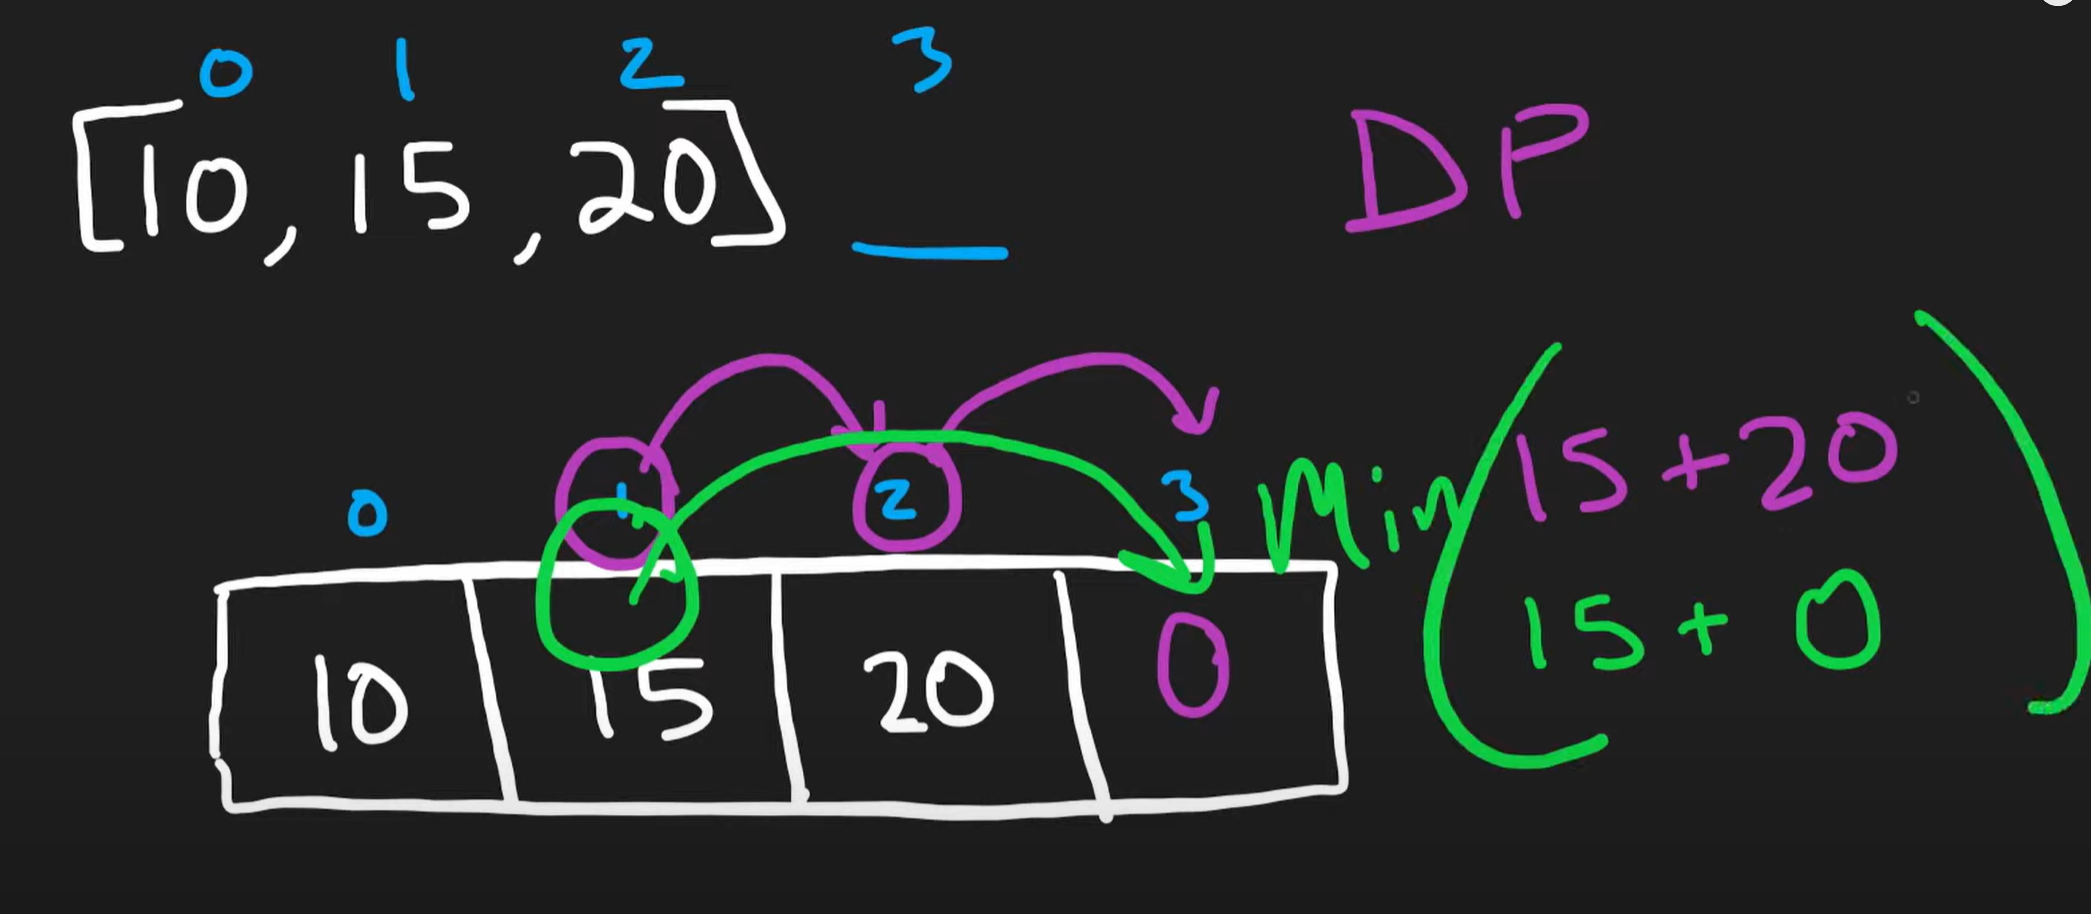 0 1 2 3
[10, 15, 20] _
DP
0 1 2 3
10 15 20 0
Min(15+20
15+0)